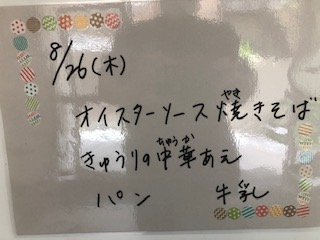 8/26(木)
オイスターソース焼きそば
きゅうりの中華あえ
パン 牛乳